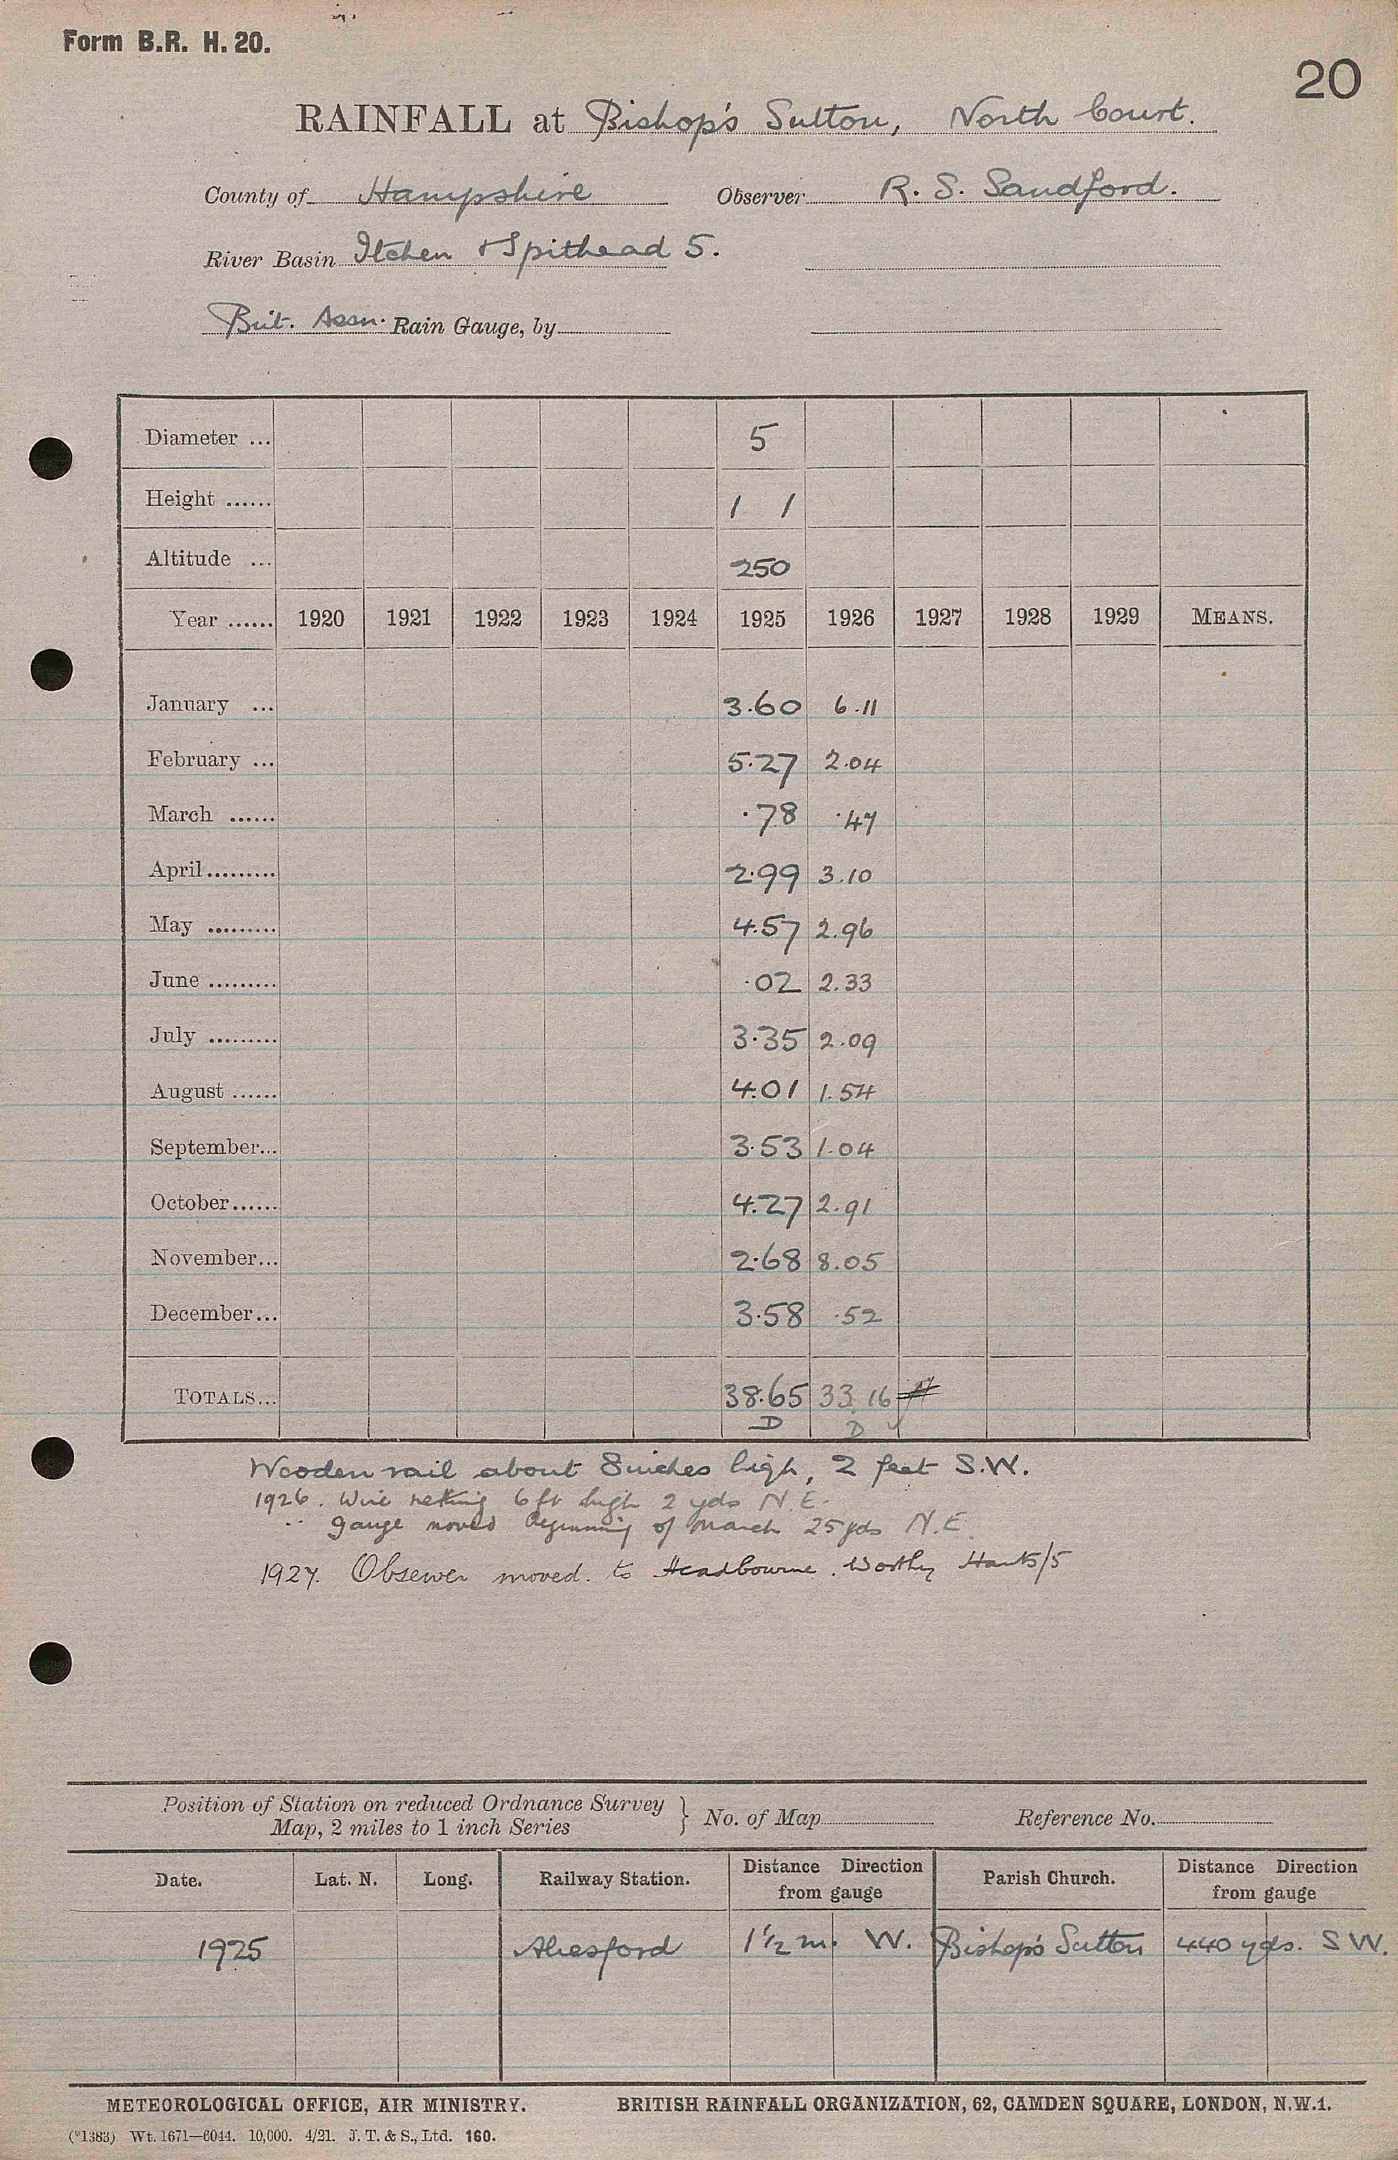 Form B.R. H. 20.
20
RAINFALL at Bishop's Sutton, North Court.
County of Hampshire Observer R. S. Sandford.
River Basin Itchen & Spithead 5.
Brit. Assn. Rain Gauge, by
Diameter ... 5
Height ...... 1 1
Altitude ... 250
Year ...... 1920 1921 1922 1923 1924 1925 1926 1927 1928 1929 MEANS.
January ... 3.60 6.11
February ... 5.27 2.04
March ...... .78 .47
April......... 2.99 3.10
May ......... 4.57 2.96
June ......... .02 2.33
July ......... 3.35 2.09
August ...... 4.01 1.54
September... 3.53 1.04
October...... 4.27 2.91
November... 2.68 8.05
December... 3.58 .52
TOTALS... 38.65 33.16
D D
Wooden rail about 8 inches high, 2 feet S.W.
1926. Wire netting 6 ft high 2 yds N.E.
" gauge moved beginning of March 25 yds N.E.
1927. Observer moved. to Headbourne. Worthy Hants/5
Position of Station on reduced Ordnance Survey
Map, 2 miles to 1 inch Series } No. of Map Reference No.
Date. Lat. N. Long. Railway Station. Distance Direction from gauge Parish Church. Distance Direction from gauge
1925 Alresford 1½ m. W. Bishop's Sutton 440 yds. S W.
METEOROLOGICAL OFFICE, AIR MINISTRY. BRITISH RAINFALL ORGANIZATION, 62, CAMDEN SQUARE, LONDON, N.W.1.
(*1383) Wt. 1671—6044. 10,000. 4/21. J. T. & S., Ltd. 160.